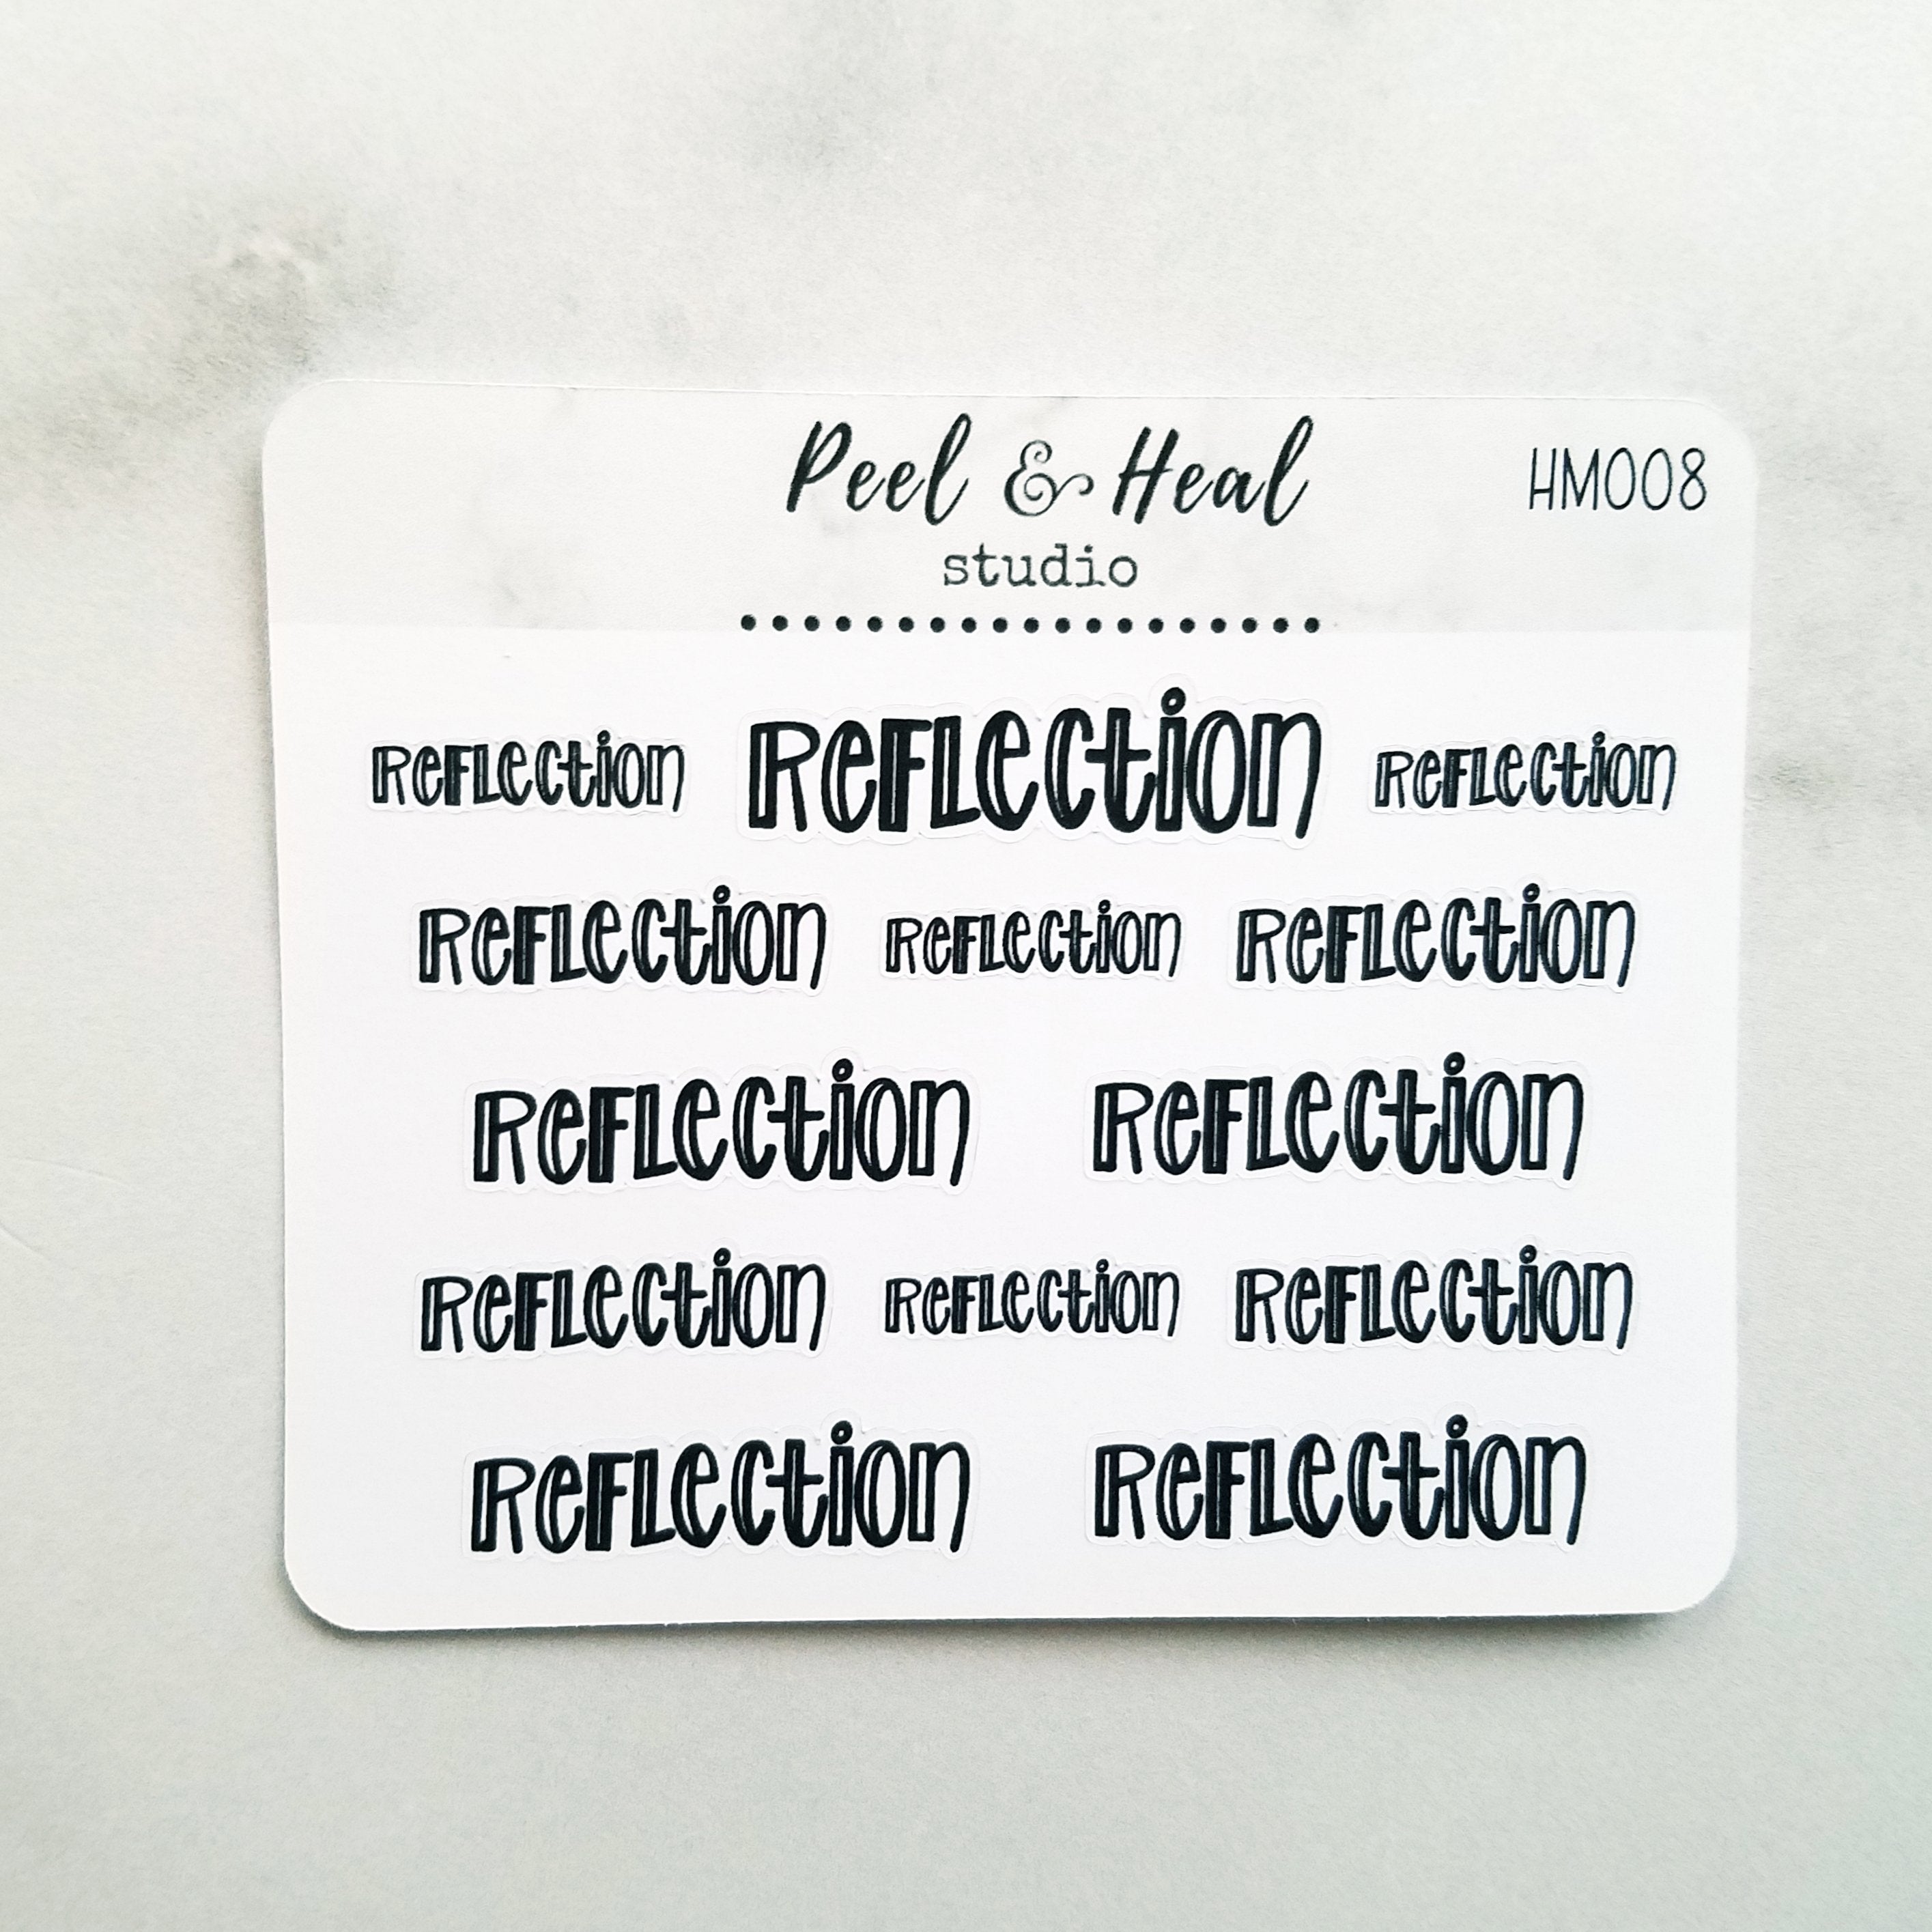 Peel & Heal
HM008
studio
REFLECTION REFLECTION REFLECTION
REFLECTION REFLECTION REFLECTION
REFLECTION REFLECTION
REFLECTION REFLECTION REFLECTION
REFLECTION REFLECTION